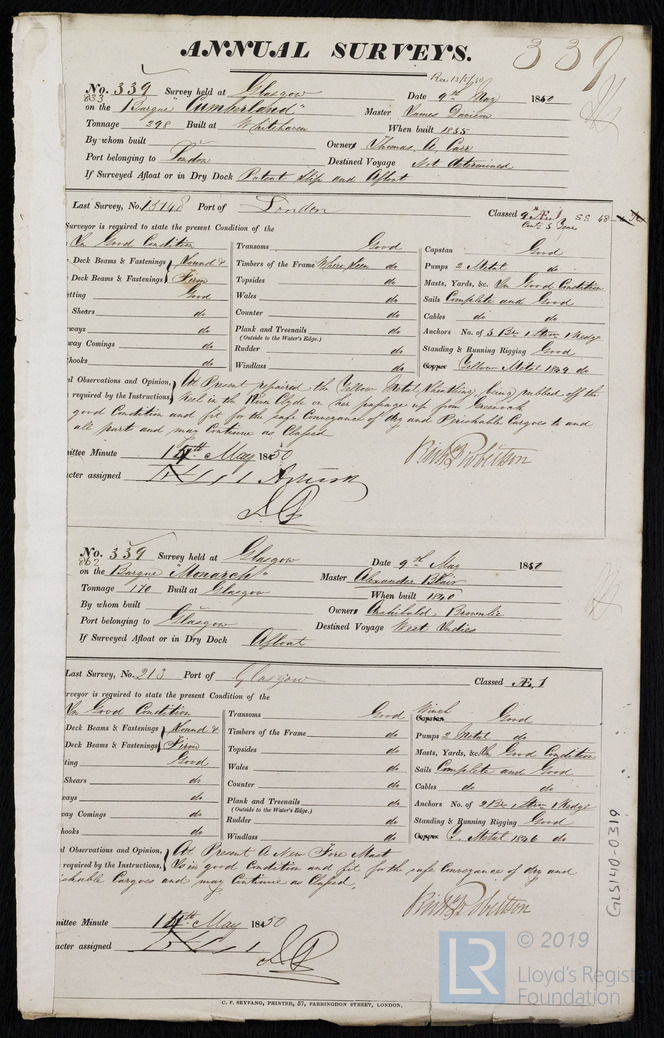 ANNUAL SURVEYS.
339
Rec 13/5/50
No. 339 Survey held at Glasgow Date 9th May 1850
833 on the Barque "Cumberland" Master James Davison
Tonnage 298 Built at Whitehaven When built 1835
By whom built Owners Thomas A. Carr
Port belonging to London Destined Voyage Not Determined
If Surveyed Afloat or in Dry Dock Patent Slip and Afloat
Last Survey, No. 15148 Port of London Classed Æ 1 SS 48
Surveyor is required to state the present Condition of the
In Good Condition Transoms Good Capstan Good
Deck Beams & Fastenings Sound & Timbers of the Frame Where Seen do Pumps 2 Metal do
Deck Beams & Fastenings Firm Topsides do Masts, Yards, &c. In Good Condition
tting Good Wales do Sails Complete and Good
Shears do Counter do Cables do do
ways do Plank and Treenails do Anchors No. of 3 Br. 1 Strm 1 Kedge
(Outside to the Water's Edge.)
way Comings do Rudder do Standing & Running Rigging Good
hooks do Windlass do Copper Yellow Metal 1849 do
l Observations and Opinion, At Present repaired the Yellow Metal Sheathing being rubbed off the
required by the Instructions, Keel in the River Clyde on her passage up from Greenock
good Condition and fit for the safe Conveyance of dry and Perishable Cargoes to and
all parts and may Continue as Classed
ittee Minute 14th May 1850
acter assigned
No. 339 Survey held at Glasgow Date 9th May 1850
862 on the Barque "Monarch" Master Alexander Blair
Tonnage 170 Built at Glasgow When built 1840
By whom built Owners Archibald Brownlie
Port belonging to Glasgow Destined Voyage West Indies
If Surveyed Afloat or in Dry Dock Afloat
Last Survey, No. 213 Port of Glasgow Classed Æ 1
rveyor is required to state the present Condition of the
In Good Condition Transoms Good Winch Capstan Good
Deck Beams & Fastenings Sound & Timbers of the Frame do Pumps 2 Metal do
Deck Beams & Fastenings Firm Topsides do Masts, Yards, &c. In Good Condition
ting Good Wales do Sails Complete and Good
Shears do Counter do Cables do do
ways do Plank and Treenails do Anchors No. of 2 Br. 1 Strm 1 Kedge
(Outside to the Water's Edge.)
way Comings do Rudder do Standing & Running Rigging Good
hooks do Windlass do Copper Y. Metal 1846 do
l Observations and Opinion, At Present A New Fore Mast
required by the Instructions, Is in good Condition and fit for the safe Conveyance of dry and
ishable Cargoes and may Continue as Classed,
ittee Minute 14th May 1850
acter assigned
GLS140-0319
C. F. SEYFANG, PRINTER, 57, FARRINGDON STREET, LONDON.
LR © 2019
Lloyd's Register
Foundation